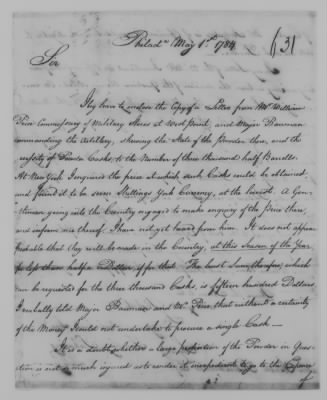 Philada May 1st. 1784
631
Sir
I beg leave to enclose the Copy of a Letter from Mr William
Price Commissary of Military Stores at West Point, and Major Bauman
commanding the Artillery, shewing the State of the Powder there, and the
necessity of Powder Casks to the Number of three thousand half Barrells.
At New York I enquired the price at which such Casks could be obtained,
and found it to be seven Shillings York Currency, at the lowest. A Gen-
tleman going into the Country engaged to make enquiry of the Price there,
and inform me thereof. I have not yet heard from him. It does not appear
probable that they will be made in the Country, at this Season of the Year
for less than half a Dollar, if for that. The least Sum therefore, which
can be requisite for the three thousand Casks, is fifteen hundred Dollars.
I verbally told Major Bauman and Mr. Price that without a certainty
of the Money I could not undertake to procure a single Cask —
It is a doubt whether a large proportion of the Powder in Ques-
tion is not so much injured as to render it inexpedient to go to the Expence
of